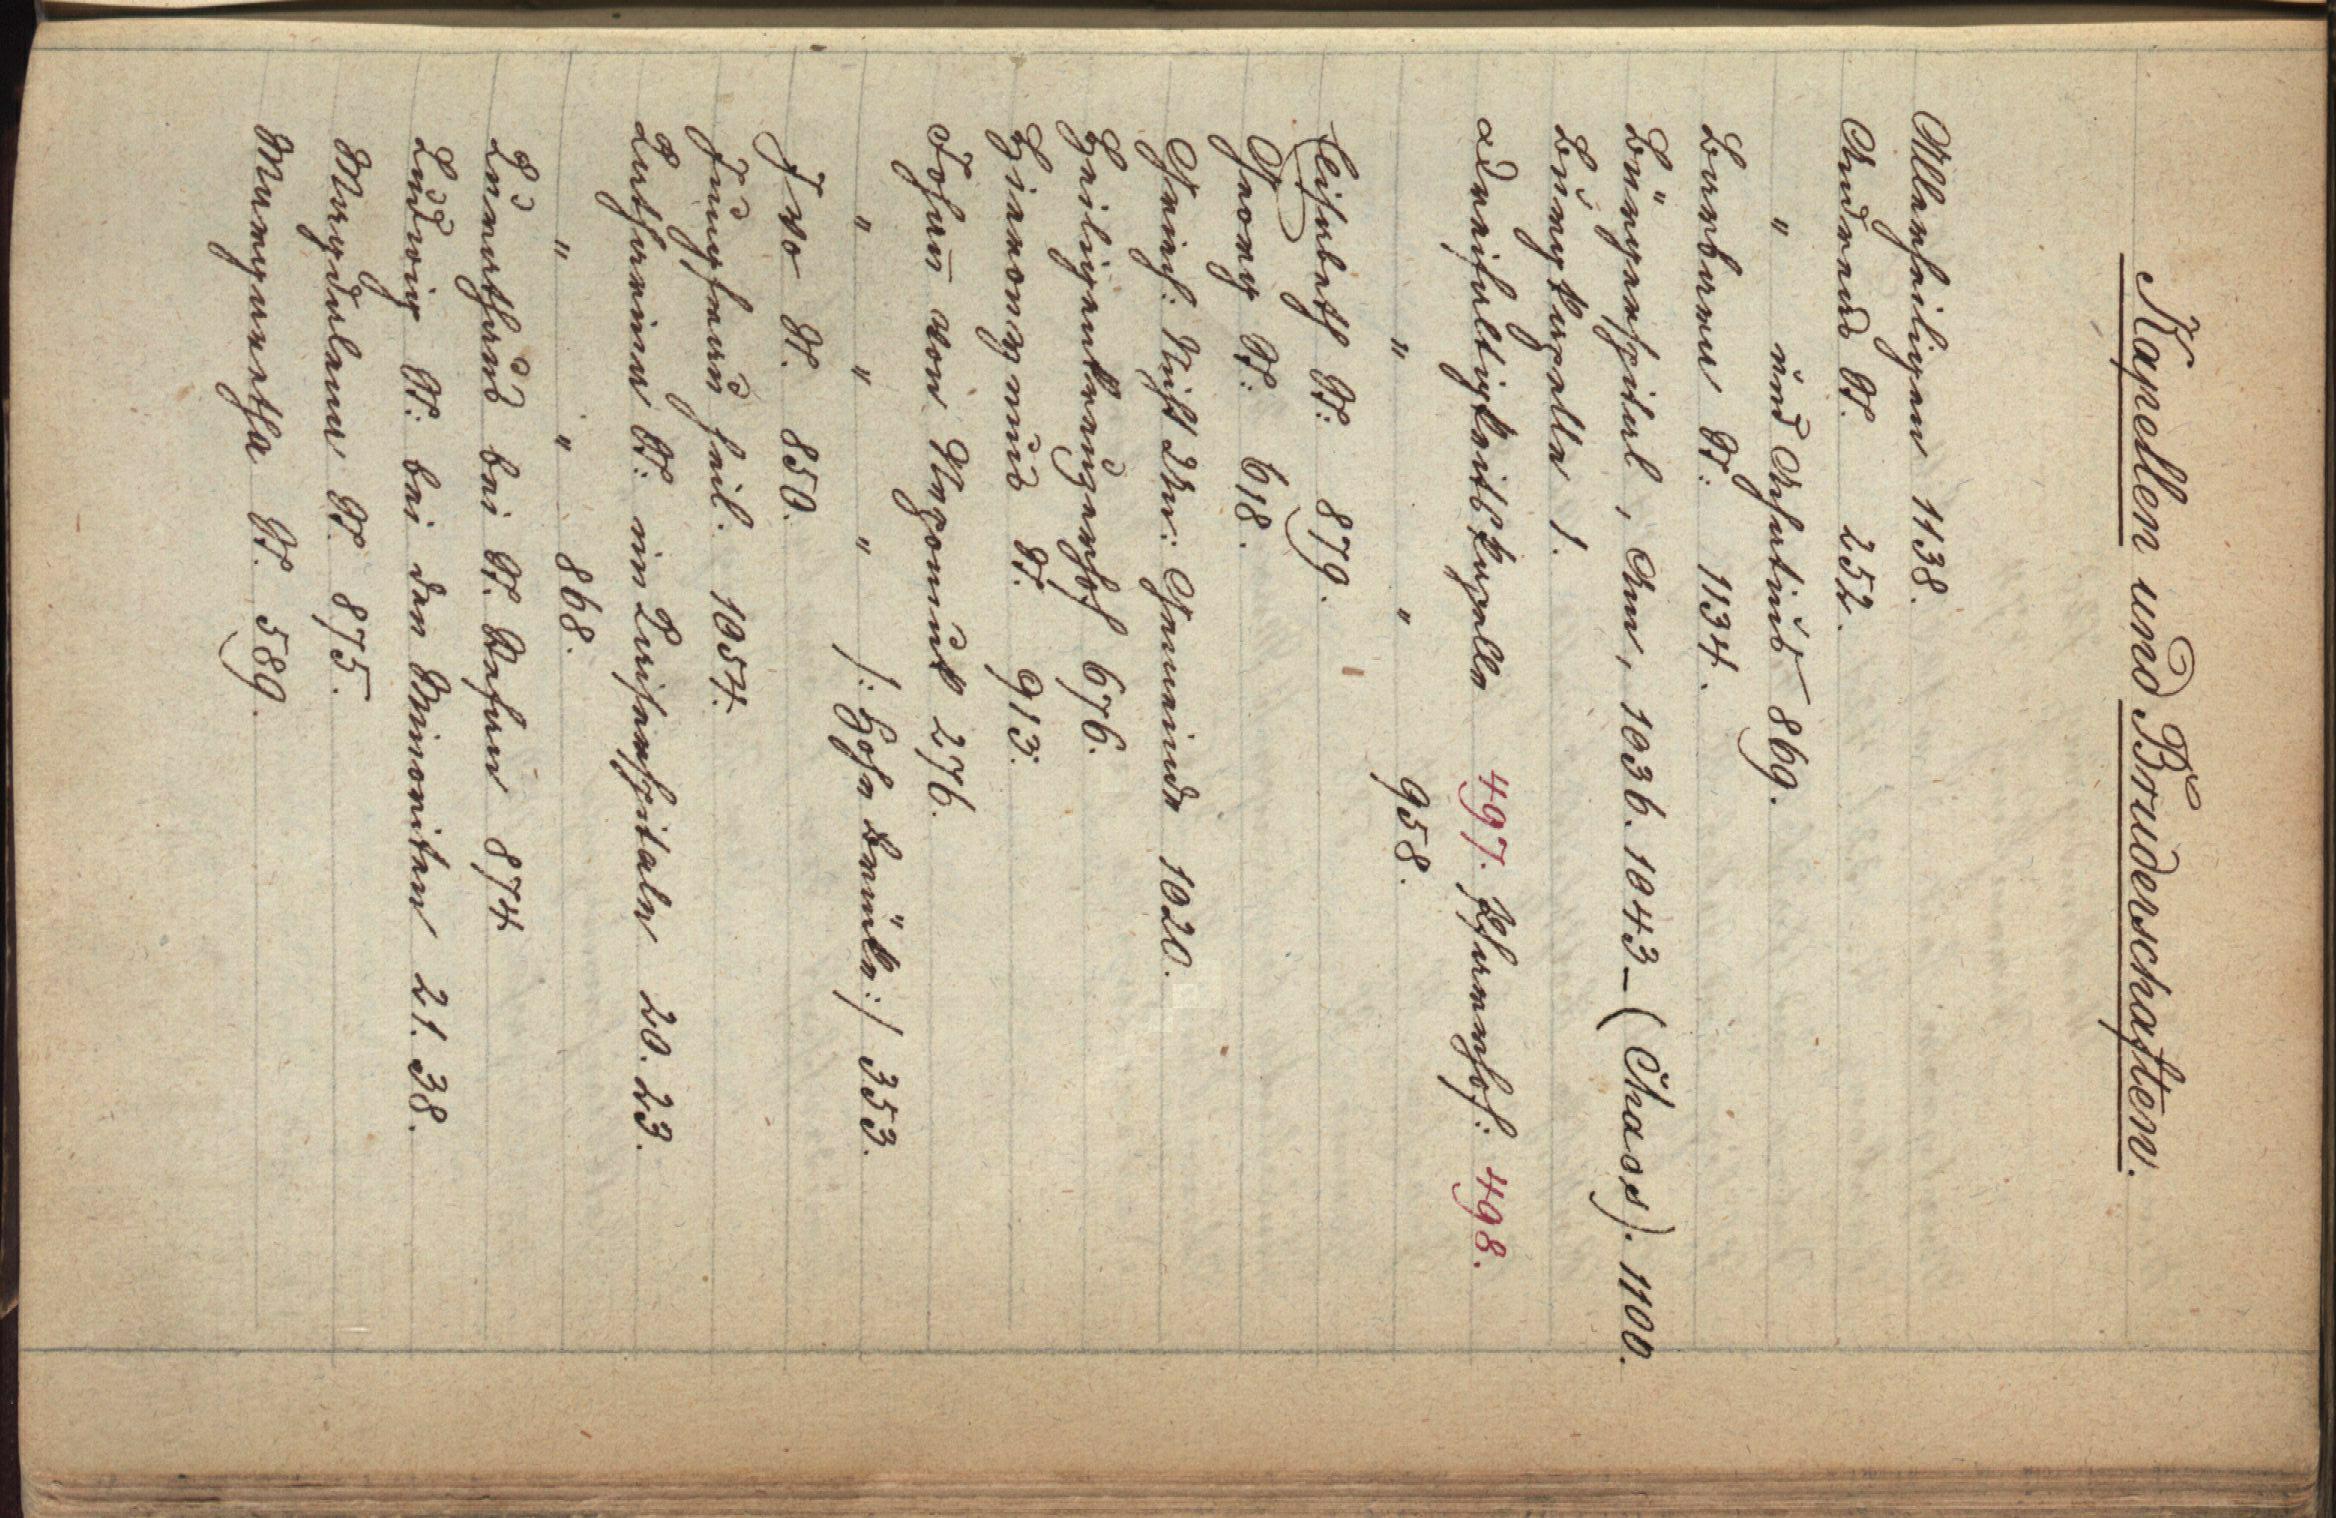 Kapellen und Bruderschaften.
Allerheiligen 1138.
Andreas St. 252.
" und Achatius 869.
Barbara St: 1134.
Bürgerspital, Am, 1036. 1043 - (Chaos). 1100.
Burgkapelle 1.
Dreifaltigkeitskapelle 497. Pfarrhof: 498.
" " 958.
Elisabeth St: 879.
Georg St: 618.
Griech. Nicht Un: Gemeinde 1020.
Heiligenkreuzerhof 676.
Hieronymus St. 913.
Johan̄ von Nepomuk 276.
" " " /: Hohe Brücke:/ 353.
Ivo St. 850.
Jungfrau heil. 1054.
Katharina St: im Kaiserspitale 20. 23.
" " 868.
Leinathaus bei St. Stefan 874
Ludwig St: bei den Minoriten 21. 38.
Magdalena St. 875.
Margaretha St. 589.